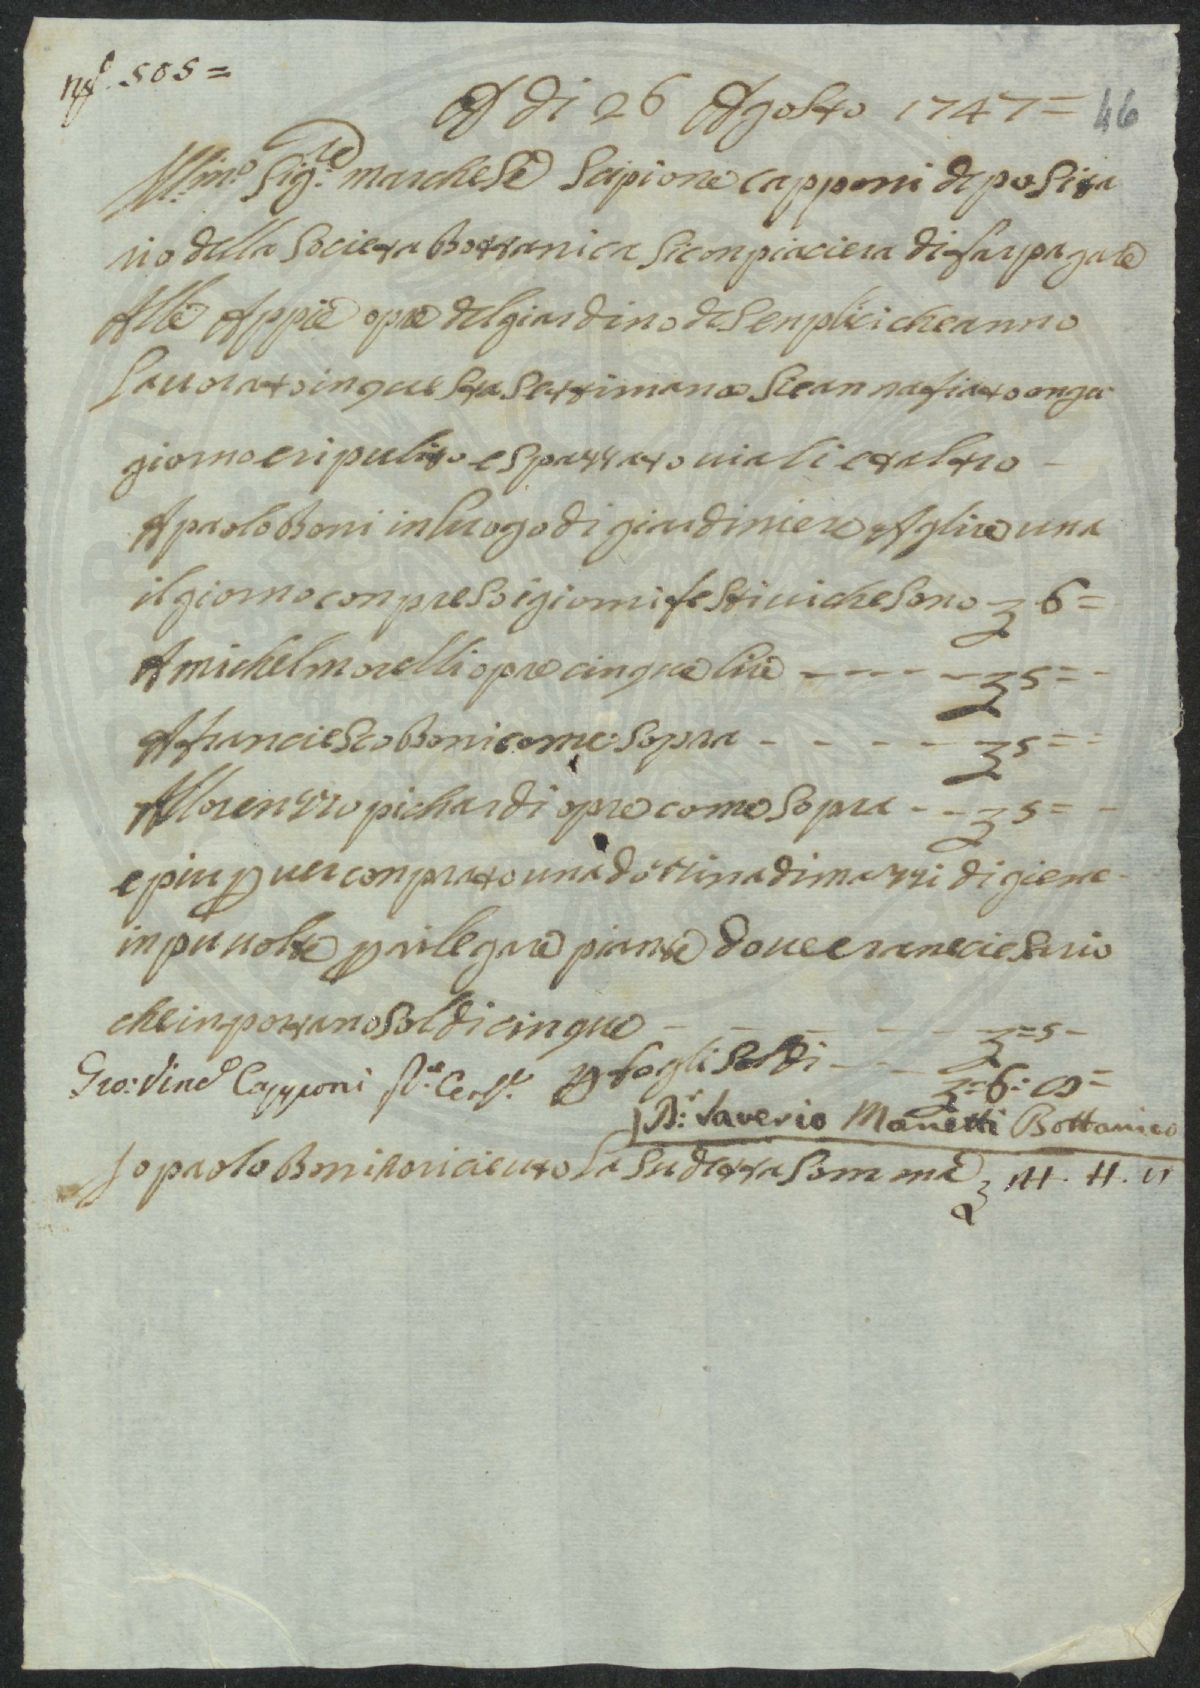 N.º 505 =
A dì 26 Agosto 1747 = 46
Ill.mo Sig.re marchese Scipione Capponi deposita
rio della Societa Bottanica Si conpiaciera di far pagare
Alle Appie opre del giardino de Senplici che anno
lavorato in questa Settimana Si e annafiato ongni
giorno e ripulito e spazzato viali et altro -
A paolo Boni in luogo di giardiniere A lire una
il giorno conpreso i giorni festivi che sono 6 =
A michel morelli opre cinque lire - - - - 5 = -
A franciesco Boni come sopra - - - - - 5 = =
A lorenzzo pichardi opre come sopra - - 5 = -
e piu per ver conprato una dozzina di mazzi di giene
in piu volte per rilegare piante dove era neciesario
che inportano soldi cinque - - - - - - = 5 -
Gio: Vinc.o Capponi per fogli soldi - - - = 6 : 8 =
D.r Saverio Manetti Bottanico
Io paolo Boni o ricieuto la sudetta somma